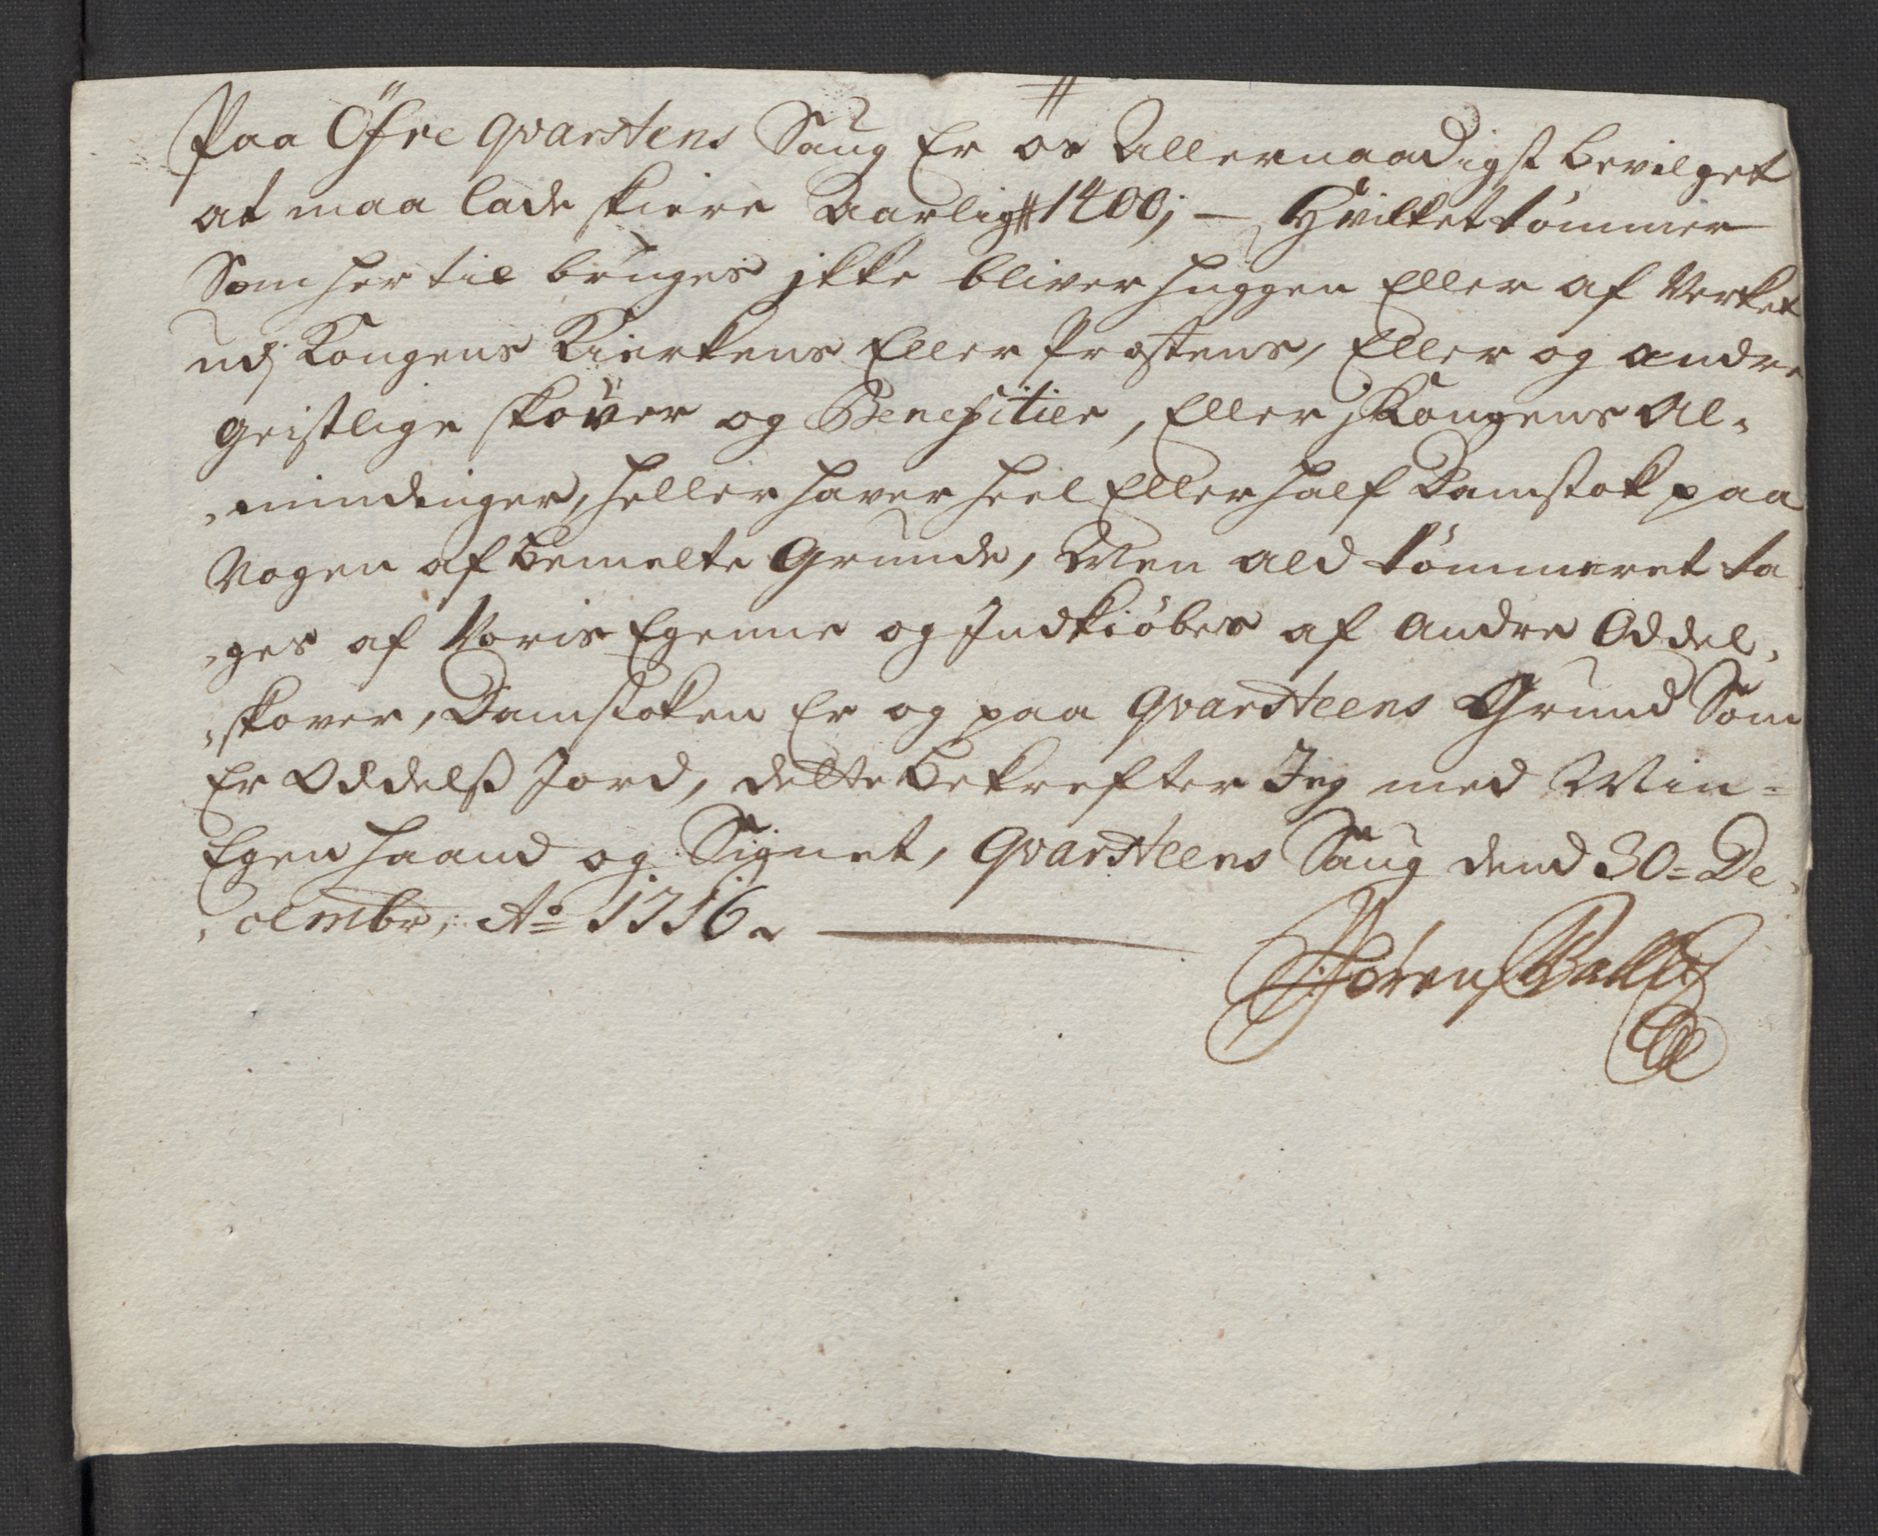 Paa Öfre Qvarstens Saug Er os Allernaadigst bevilget
at maa lade skiere Aarlig # 1400; — Hvilket tömmer
Som her til bruges ikke bliver huggen Eller af Verket
udj Kongens Kierkens Eller Præstens, Eller og andre
geistlige skover og Benefitier, Eller j Kongens Al-
-mindinger, heller haver heel Eller half Damstok paa
Nogen af bemelte Grunde, Men ald tömmeret ta
-ges af Voris Egenne og Indkiöbes af Andre Oddel-
-skover, Damstoken Er og paa Qvarsteens Grund Som
Er Oddelß Jord, dette bekrefter Jeg med Min-
Egen haand og Signet, Qvarsteens Saug dend 30= De-
-cembr: Ao 1716.
Sören